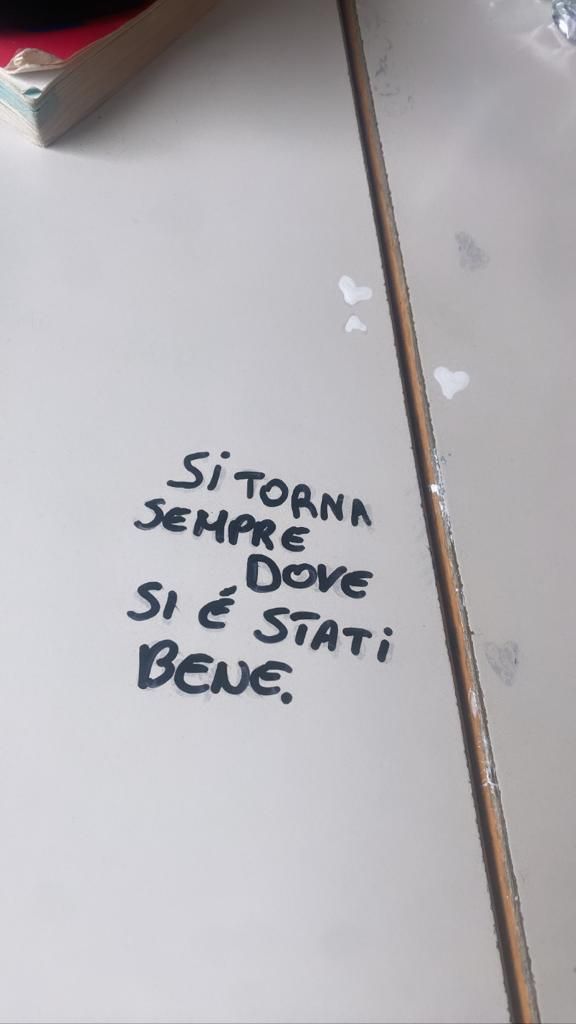 Si TORNA
SEMPRE
DOVE
SI É STATi
BENE.